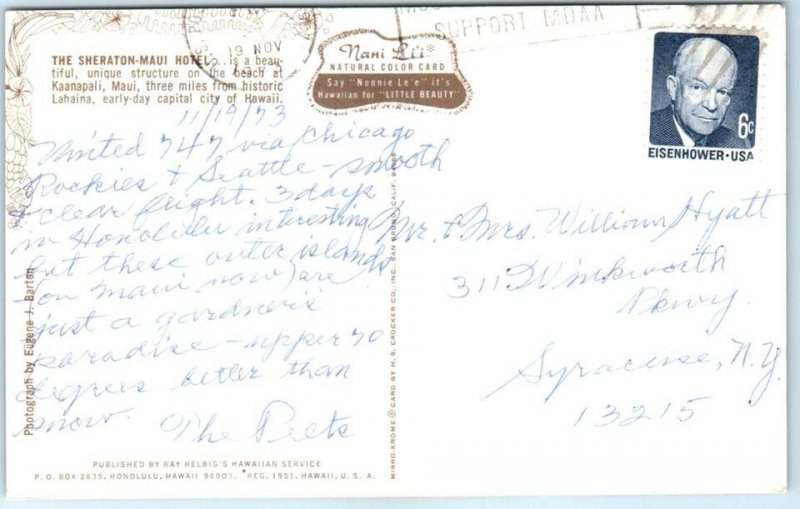 19 NOV
SUPPORT MDAA
THE SHERATON-MAUI HOTEL... is a beau-
tiful, unique structure on the beach at
Kaanapali, Maui, three miles from historic
Lahaina, early-day capital city of Hawaii.
Nani Li'i*
NATURAL COLOR CARD
Say "Nonnie Le'e" it's
Hawaiian for "LITTLE BEAUTY"
6c
EISENHOWER·USA
11/19/73
United 747 via Chicago
Rockies & Seattle - smooth
& clear flight. 3 days
in Honolulu interesting
but these outer islands
(on Maui now) are
just a gardner's
paradise - upper 70
degrees better than
snow.
The Peets
Mr. & Mrs. William Hyatt
311 Winkworth
Pkwy.
Syracuse, N.Y.
13215
Photograph by Eugene J. Barton
MIRRO-KROME ® CARD BY H. S. CROCKER CO., INC., SAN BRUNO, CALIF.
PUBLISHED BY RAY HELBIG'S HAWAIIAN SERVICE
P. O. BOX 2835, HONOLULU, HAWAII 96803. REG. 1951, HAWAII, U. S. A.